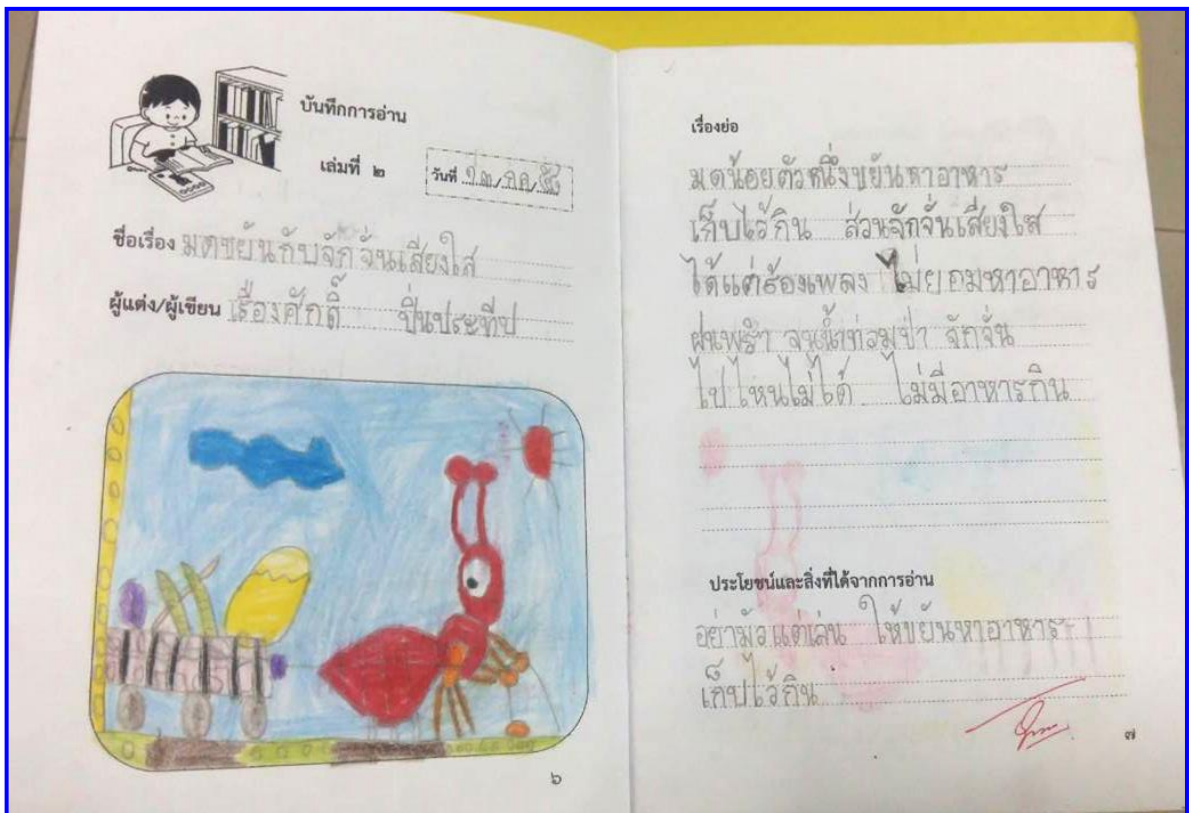 บันทึกการอ่าน
เล่มที่ ๒
วันที่ ๑๓/ก.ค./
ชื่อเรื่อง มดขยันกับจักจั่นเสียงใส
ผู้แต่ง/ผู้เขียน เรืองศักดิ์ ปิ่นประทีป
๖
เรื่องย่อ
มดน้อยตัวหนึ่งขยันหาอาหาร
เก็บไว้กิน ส่วนจักจั่นเสียงใส
ได้แต่ร้องเพลง ไม่ยอมหาอาหาร
ฝนพรำ จนน้ำท่วมป่า จักจั่น
ไปไหนไม่ได้ ไม่มีอาหารกิน
ประโยชน์และสิ่งที่ได้จากการอ่าน
อย่ามัวแต่เล่น ให้ขยันหาอาหาร
เก็บไว้กิน
๗